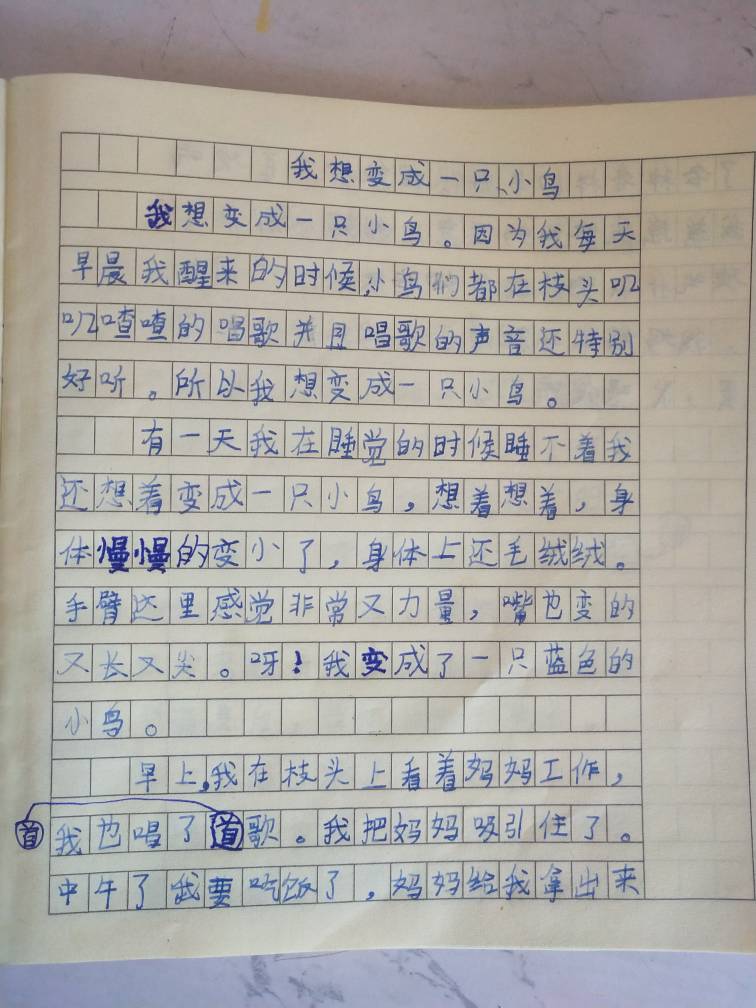 我想变成一只小鸟
我想变成一只小鸟。因为我每天
早晨我醒来的时候,小鸟们都在枝头叽
叽喳喳的唱歌并且唱歌的声音还特别
好听。所以我想变成一只小鸟。
有一天我在睡觉的时候睡不着我
还想着变成一只小鸟，想着想着，身
体慢慢的变小了，身体上还毛绒绒。
手臂这里感觉非常又力量，嘴也变的
又长又尖。呀！我变成了一只蓝色的
小鸟。
早上,我在枝头上看着妈妈工作，
首 我也唱了道歌。我把妈妈吸引住了。
中午了我要吃饭了，妈妈给我拿出来